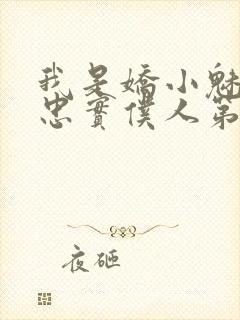 我是嬌小魅
忠實僕人第
夜砸